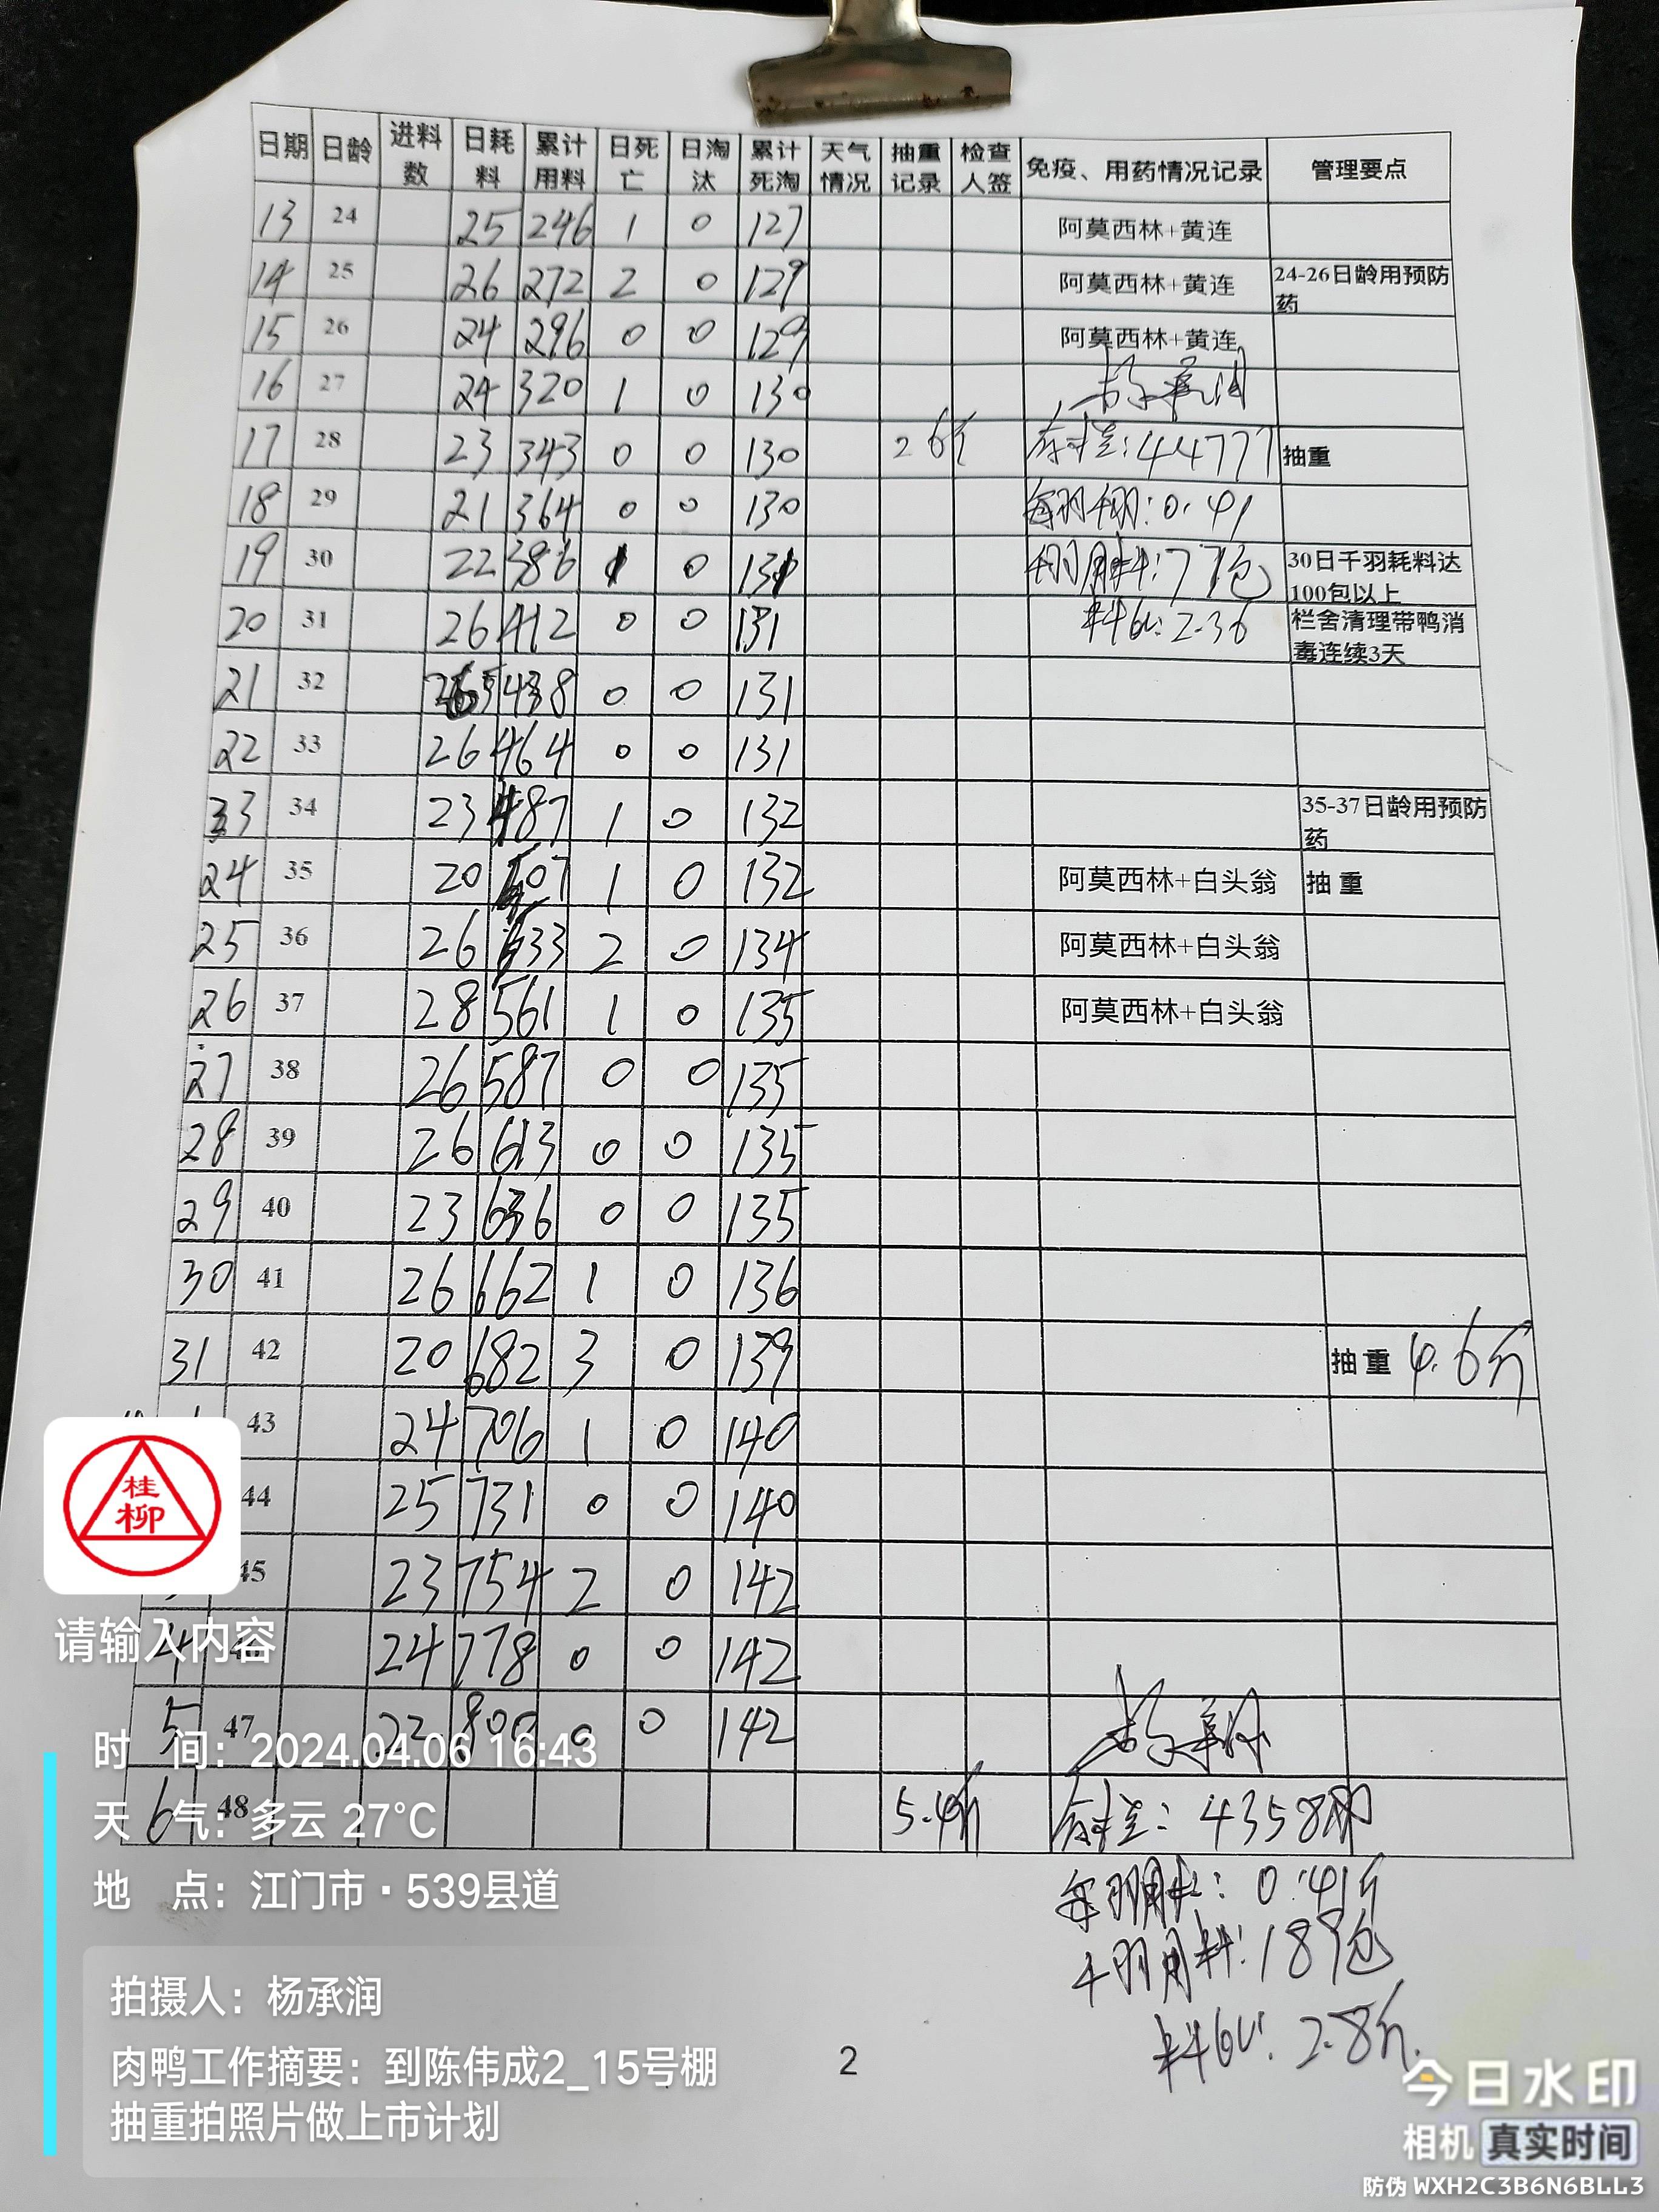 日期 日龄 进料数 日耗料 累计用料 日死亡 日淘汰 累计死淘 天气情况 抽重记录 检查人签 免疫、用药情况记录 管理要点
13 24 25 246 1 0 127 阿莫西林+黄连
14 25 26 272 2 0 129 阿莫西林+黄连 24-26日龄用预防药
15 26 24 296 0 0 129 阿莫西林+黄连
16 27 24 320 1 0 130
17 28 23 343 0 0 130 2.6斤 存栏: 4477 抽重
18 29 21 364 0 0 130 0.41
19 30 22 386 1 0 131 用料: 77包 30日千羽耗料达100包以上
20 31 26 412 0 0 131 料比: 2.36 栏舍清理带鸭消毒连续3天
21 32 438 0 0 131
22 33 26 464 0 0 131
34 23 487 1 0 132 35-37日龄用预防药
24 35 20 507 1 0 132 阿莫西林+白头翁 抽重
25 36 26 533 2 0 134 阿莫西林+白头翁
26 37 28 561 1 0 135 阿莫西林+白头翁
27 38 26 587 0 0 135
28 39 26 613 0 0 135
29 40 23 636 0 0 135
30 41 26 662 1 0 136
31 42 20 682 3 0 139 抽重 4.6斤
43 24 706 1 0 140
44 25 731 0 0 140
45 23 754 2 0 142
4 24 778 0 0 142
5 47 22 800 0 0 142
6 48 5.4斤 4358羽
0.41斤
千羽用料: 189包
料比: 2.8斤
2
桂柳
请输入内容
时 间: 2024.04.06 16:43
天 气: 多云 27℃
地 点: 江门市·539县道
拍摄人: 杨承润
肉鸭工作摘要: 到陈伟成2_15号棚
抽重拍照片做上市计划
今日水印
相机 真实时间
防伪 WXH2C3B6N6BLL3